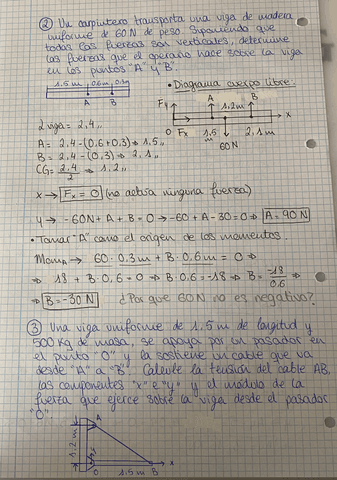 ② Un carpintero transporta una viga de madera
uniforme de 60 N de peso. Suponiendo que
todas las fuerzas son verticales, determine
las fuerzas que el operario hace sobre la viga
en los puntos "A" y "B".
1.5 m, 0.6 m, 0.3 m
A B
• Diagrama cuerpo libre:
Fy A 1,2m B
x
O Fx 1,5 m 2,1 m
60N
L viga = 2,4 m
A = 2,4 - (0,6 + 0,3) ⇒ 1,5 m
B = 2,4 - (0,3) ⇒ 2,1 m
CG = 2,4/2 ⇒ 1,2 m
x → Fx = 0 (no actúa ninguna fuerza)
y → -60N + A + B = 0 → -60 + A - 30 = 0 ⇒ A = 90 N
• Tomar "A" como el origen de los momentos.
MomA → 60 · 0,3 m + B · 0,6 m = 0 ⇒
⇒ 18 + B · 0,6 = 0 ⇒ B · 0,6 = -18 ⇒ B = -18/0,6 ⇒
⇒ B = -30 N ¿Por qué 60 N no es negativo?
③ Una viga uniforme de 1.5 m de longitud y
500 Kg de masa, se apoya por un pasador en
el punto "O" y la sostiene un cable que va
desde "A" a "B". Calcule la tensión del cable AB,
las componentes "x" e "y" y el módulo de la
fuerza que ejerce sobre la viga desde el pasador
"O".
A
1.2 m
O 1.5 m B x